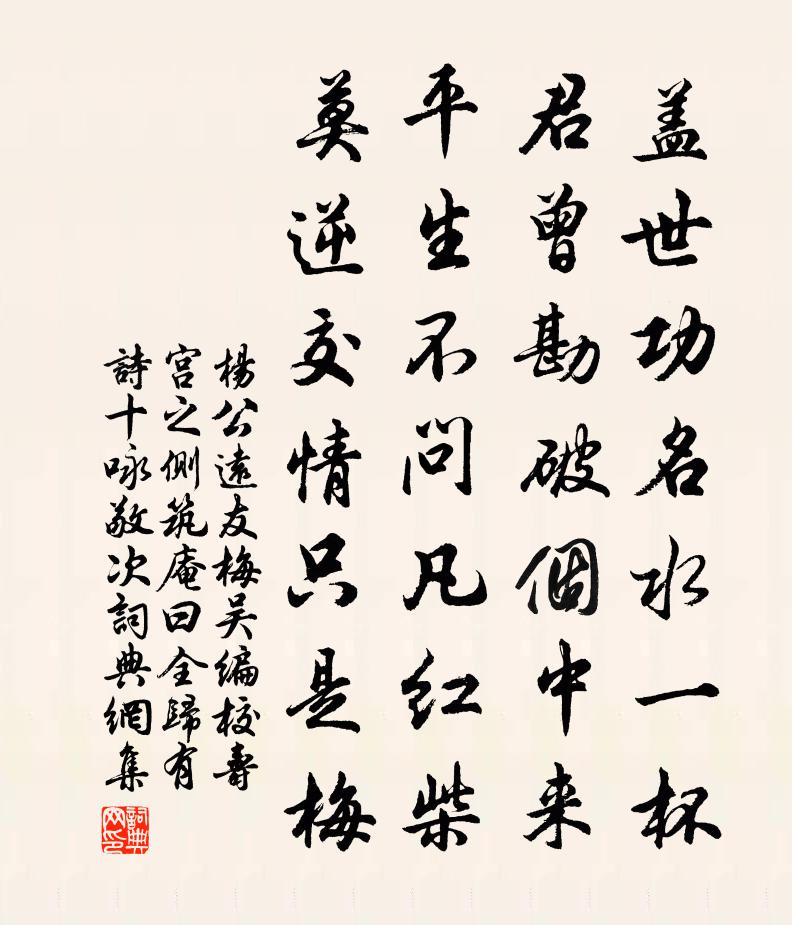 盖世功名水一杯
君曾勘破個中来
平生不问凡红柴
莫逆交情只是梅
楊公遠友梅吴編校壽
宫之側筑庵曰全歸有
詩十咏敬次詞典網集
詞典
网印